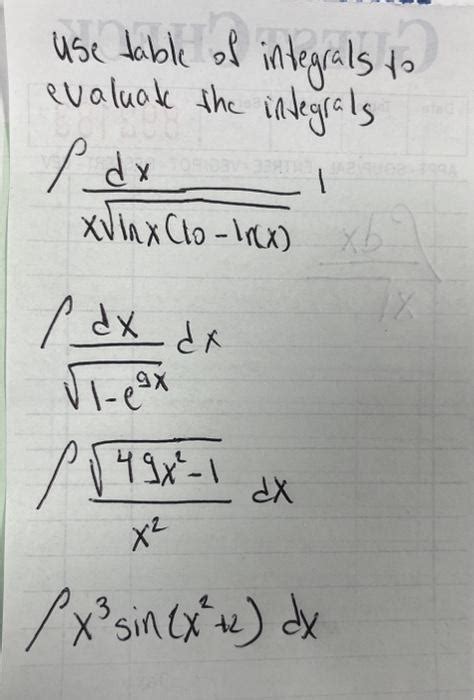 GUEST CHECK
use table of integrals to
evaluate the integrals
∫ dx / x√lnx(10 - ln(x)) 1
∫ dx / √1-e^9x dx
∫ √49x²-1 / x² dx
∫ x³ sin(x²+2) dx